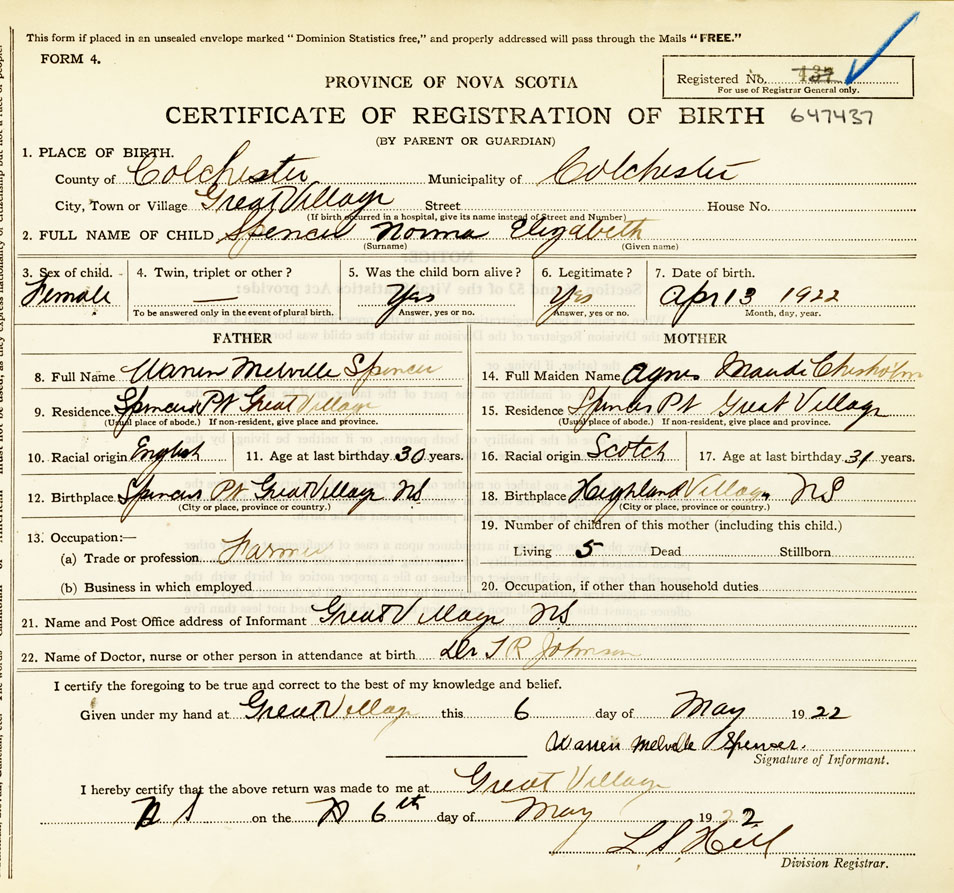 This form if placed in an unsealed envelope marked "Dominion Statistics free," and properly addressed will pass through the Mails "FREE."
FORM 4.
PROVINCE OF NOVA SCOTIA
Registered No. 437
For use of Registrar General only.
CERTIFICATE OF REGISTRATION OF BIRTH 647437
(BY PARENT OR GUARDIAN)
1. PLACE OF BIRTH.
County of Colchester Municipality of Colchester
City, Town or Village Great Village Street House No.
(If birth occurred in a hospital, give its name instead of Street and Number)
2. FULL NAME OF CHILD Spencer Norma Elizabeth
(Surname) (Given name)
3. Sex of child. 4. Twin, triplet or other? 5. Was the child born alive? 6. Legitimate? 7. Date of birth.
Female — Yes Yes Apr 13 1922
To be answered only in the event of plural birth. Answer, yes or no. Answer, yes or no. Month, day, year.
FATHER MOTHER
8. Full Name Warren Melville Spencer 14. Full Maiden Name Agnes Maude Chisholm
9. Residence Spencers Pt Great Village 15. Residence Spencers Pt Great Village
(Usual place of abode.) If non-resident, give place and province. (Usual place of abode.) If non-resident, give place and province.
10. Racial origin English 11. Age at last birthday 30 years. 16. Racial origin Scotch 17. Age at last birthday 31 years.
12. Birthplace Spencers Pt Great Village NS 18. Birthplace Highland Village NS
(City or place, province or country.) (City or place, province or country.)
13. Occupation:— 19. Number of children of this mother (including this child.)
(a) Trade or profession Farmer Living 5 Dead Stillborn
(b) Business in which employed 20. Occupation, if other than household duties
21. Name and Post Office address of Informant Great Village NS
22. Name of Doctor, nurse or other person in attendance at birth Dr T R Johnson
I certify the foregoing to be true and correct to the best of my knowledge and belief.
Given under my hand at Great Village this 6 day of May 1922
Warren Melville Spencer.
Signature of Informant.
I hereby certify that the above return was made to me at Great Village
N S on the 6th day of May 1922
L S Hill
Division Registrar.